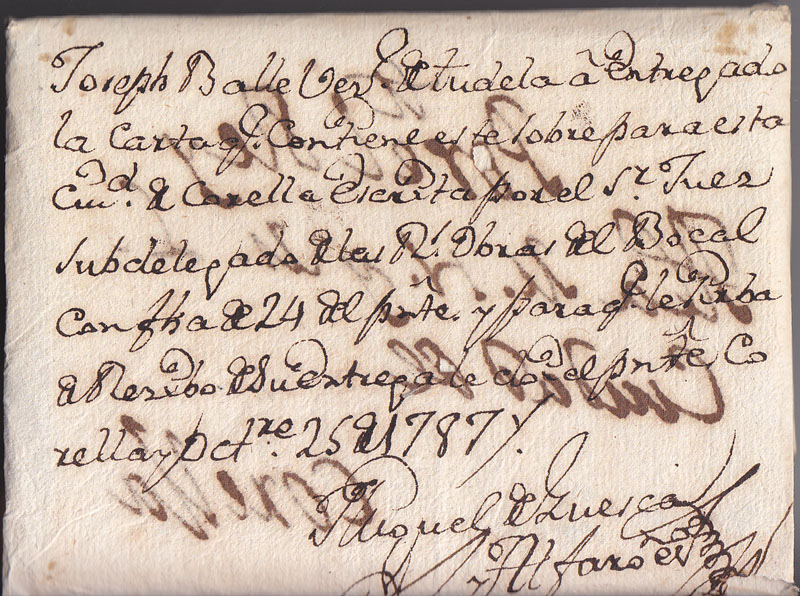 Joseph Balle Vez.º de Tudela à Entregado
la Carta q.e Contiene este sobre para esta
Ciu.d de Corella Escrita por el S.r Juez
subdelegado de las R.s Obras del Bocal
con fha de 24 del pnte. y para q.e le sirba
de Rezibo de su entrega le doi el pnte Co
rella y Oct.re 25 de 1787.
Miguel de Huesca
y Alfaro